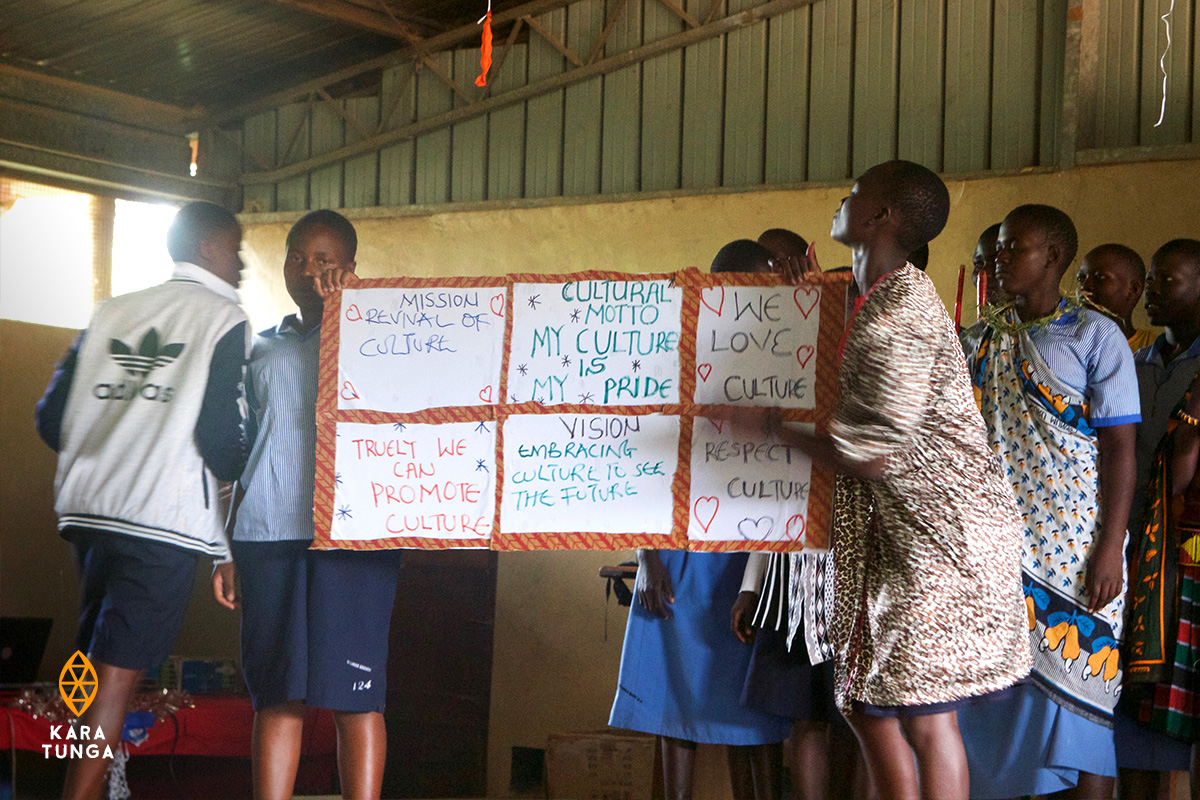 adidas
MISSION
REVIVAL OF
CULTURE
CULTURAL
MOTTO
MY CULTURE
IS
MY PRIDE
WE
LOVE
CULTURE
TRUELY WE
CAN
PROMOTE
CULTURE
VISION
EMBRACING
CULTURE TO SEE
THE FUTURE
RESPECT
CULTURE
124
KARA
TUNGA